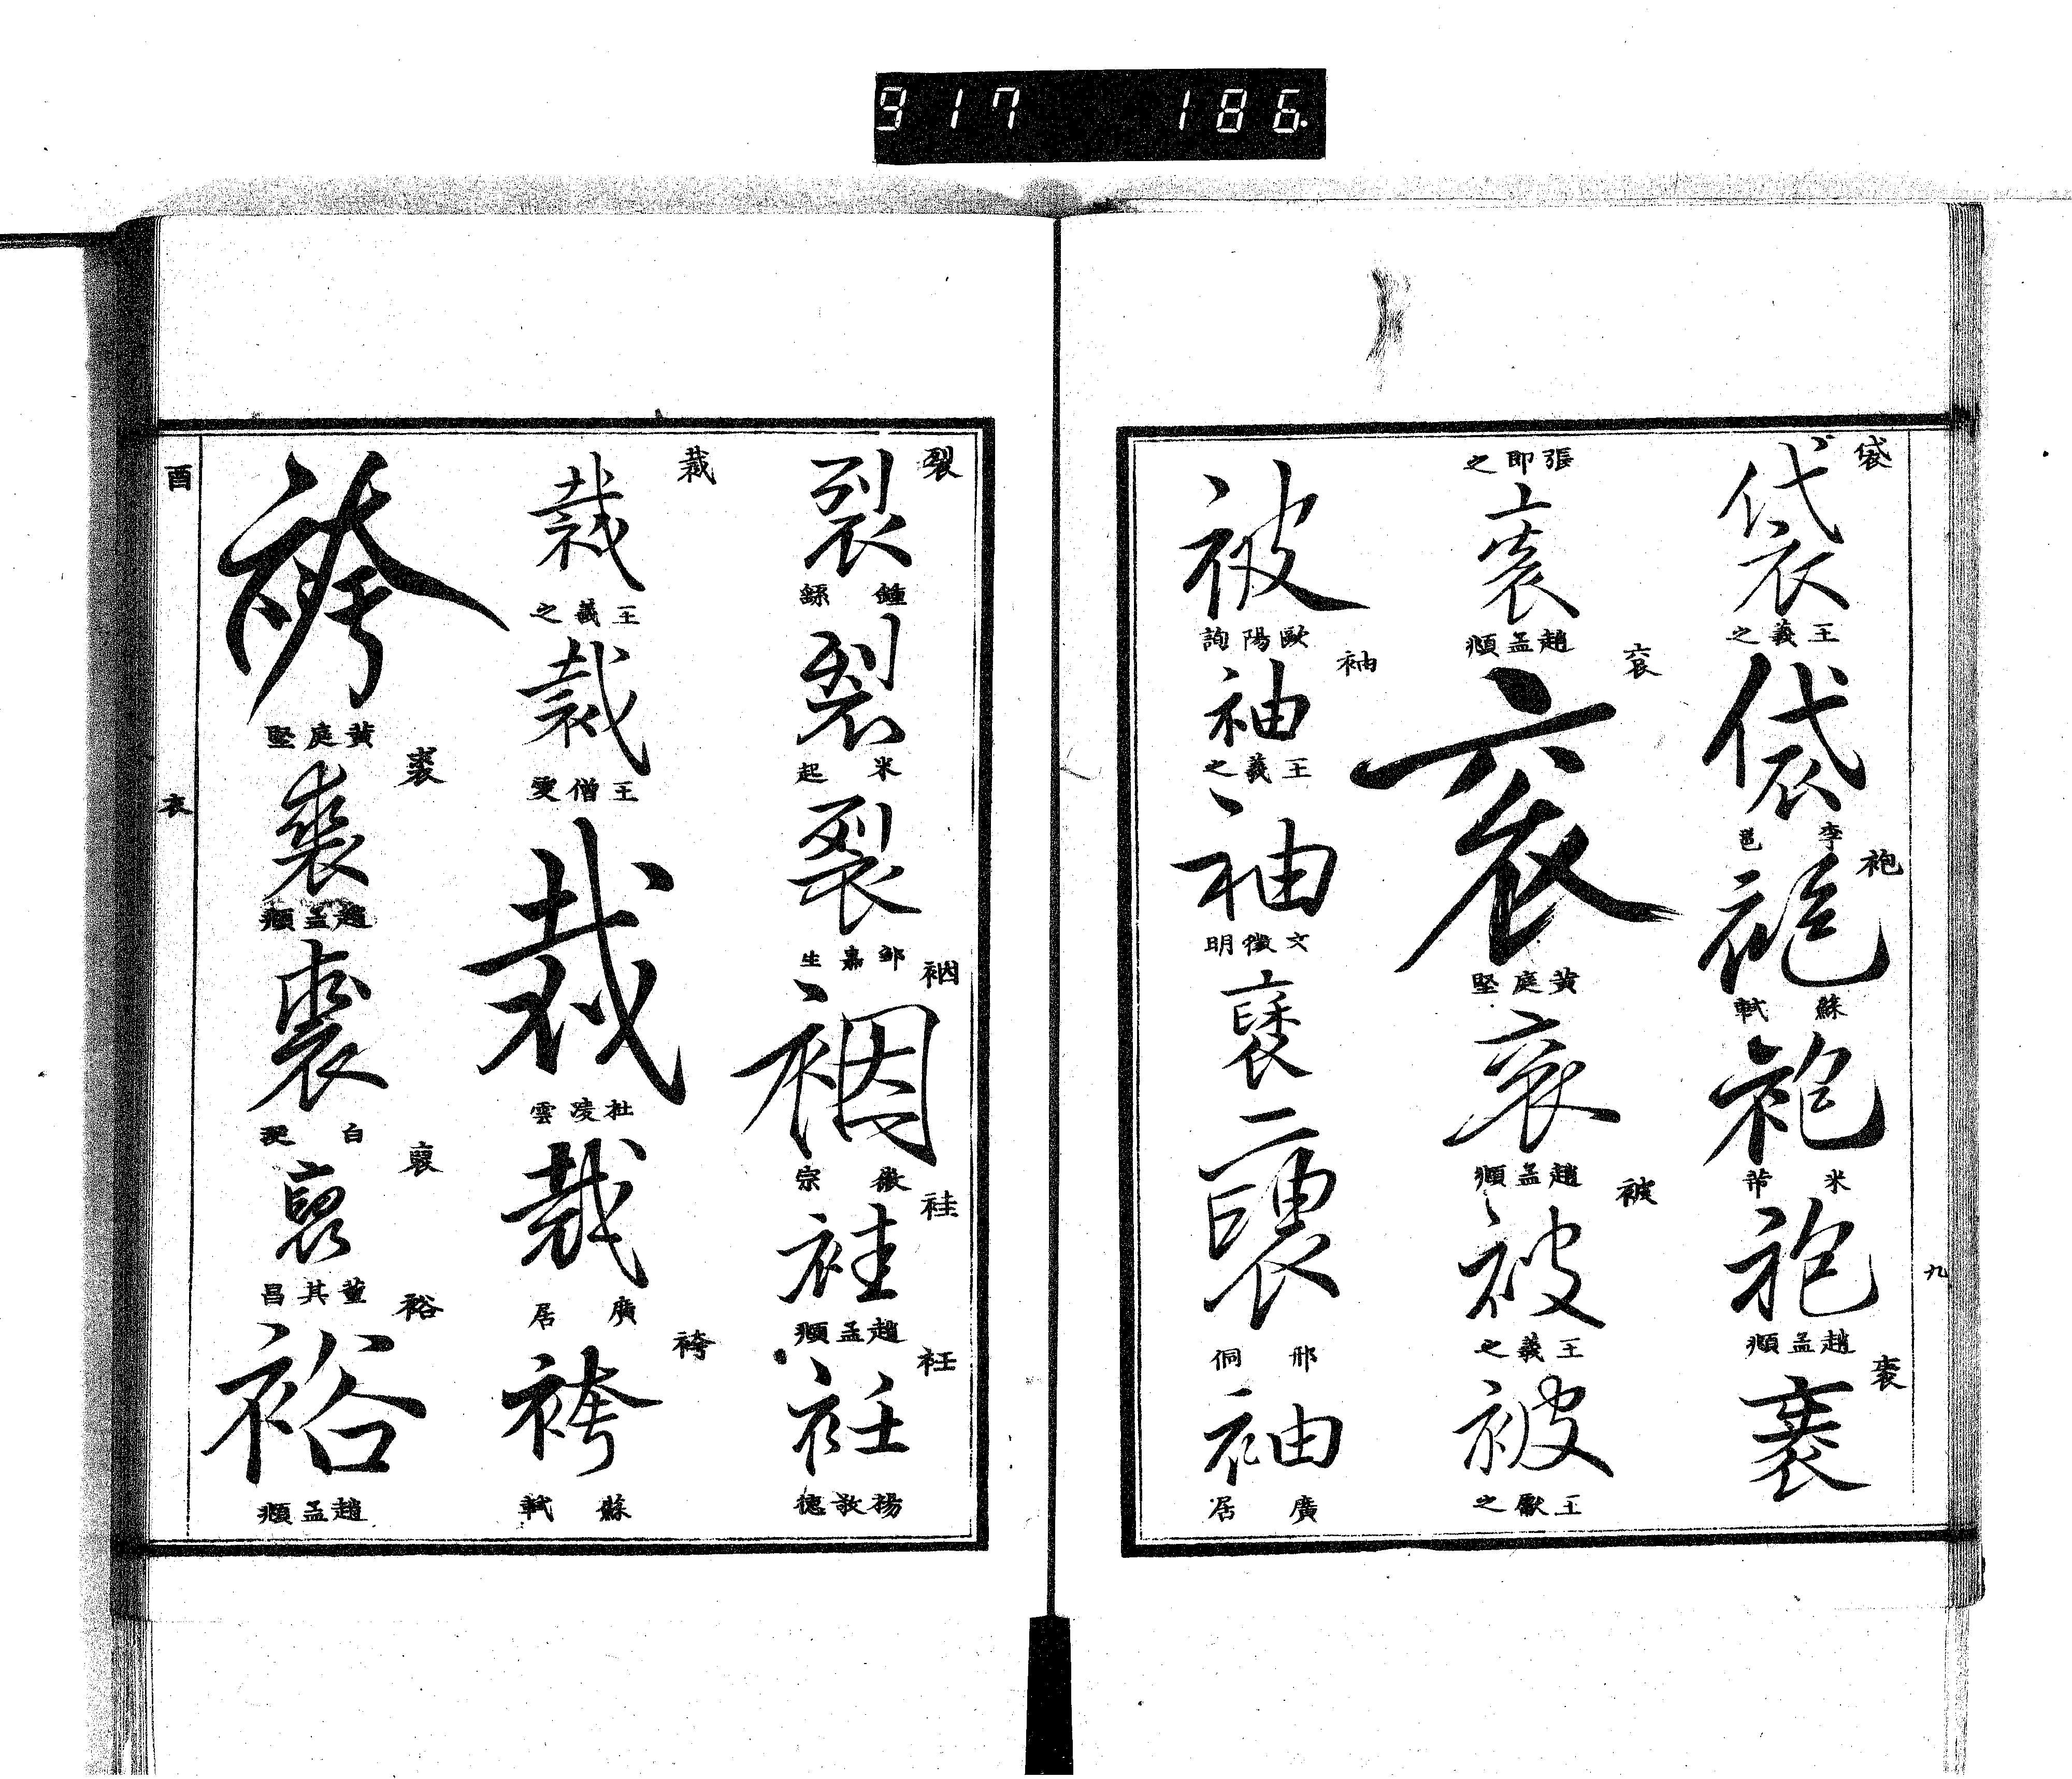 917 186
九
袋
袋
王羲之
袋
李邕
袍
袍
蘇軾
袍
米芾
袍
趙孟頫
袠
袠
張即之
袠
趙孟頫
袞
袞
黄庭堅
袞
趙孟頫
被
被
王羲之
被
王獻之
被
歐陽詢
袖
袖
王羲之
袖
文徴明
褎
邢侗
袖
廣居
裂
裂
鍾繇
裂
米芾
裂
鄒嘉生
裀
裀
徽宗
袿
袿
趙孟頫
衽
衽
楊敬悳
裁
裁
王羲之
裁
王僧虔
裁
杜凌雲
裁
廣居
袴
袴
蘇軾
袴
黄庭堅
裘
裘
趙孟頫
裘
裊
裊
董其昌
裕
裕
趙孟頫
酉
衣